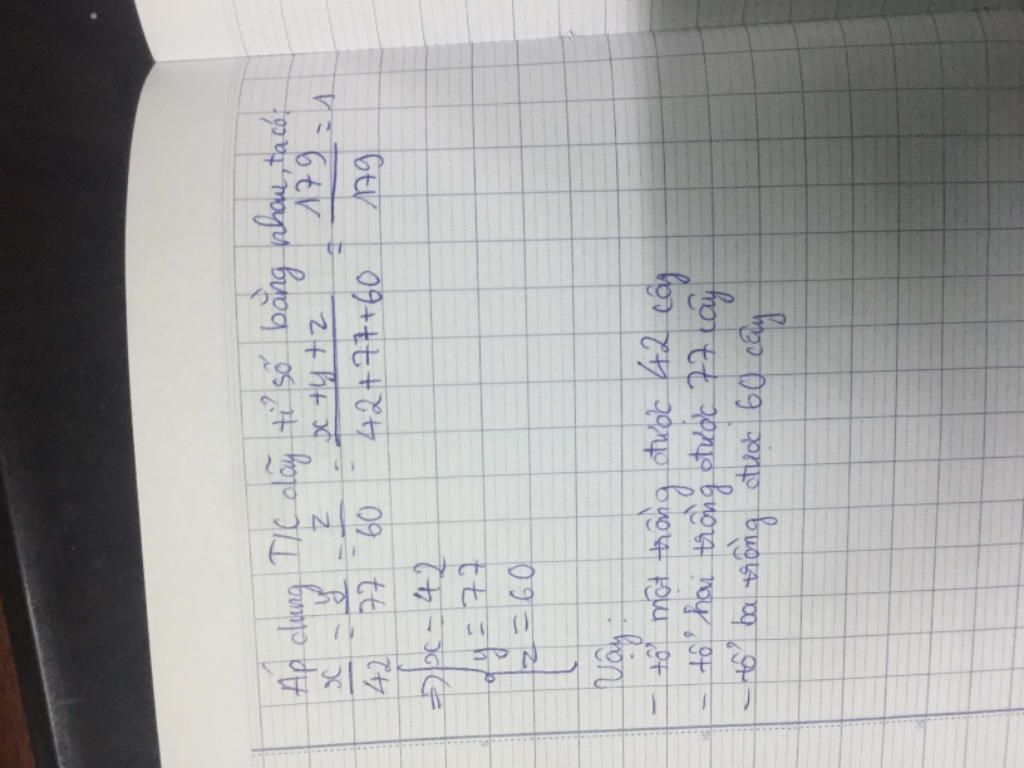 Áp dụng T/C dãy tỉ số bằng nhau, ta có:
x/42 = y/77 = z/60 = x+y+z/42+77+60 = 179/179 = 1
=> x = 42
y = 77
z = 60
Vậy:
- tổ một trồng được 42 cây
- tổ hai trồng được 77 cây
- tổ ba trồng được 60 cây